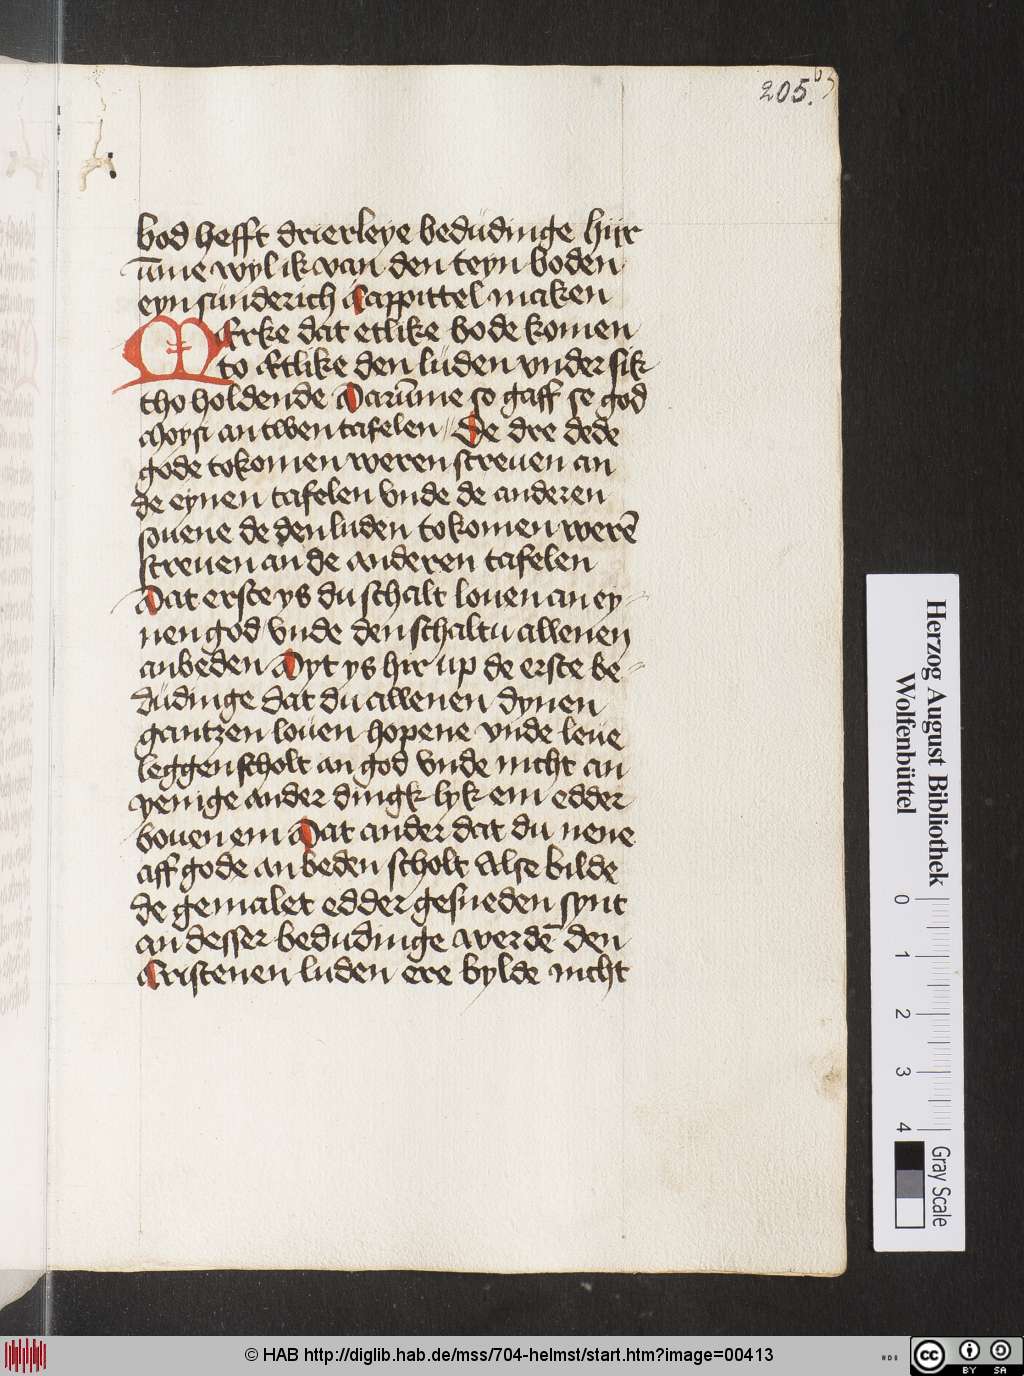 205.
bod hefft drierleye bedüdinge hijr
ūme wyl ik van den teyn boden
eyn sünderich Cappittel maken
MErke dat etlike bode komen
to Etlike den lüden vnder sik
tho holdende Darūme so gaff se god
Moysi an twen tafelen De dre dede
gode tokomen weren screuen an
de eynen tafelen vnde de anderen
souene de den luden tokomen werē
screuen an de anderen tafelen
Dat erste ys du schalt louen an ey-
nen god vnde den schaltu allenen
anbeden Dyt ys hir up de erste be-
düdinge dat du allenen dynen
gantzen louen hopene vnde leue
leggen scholt an god vnde nicht an
yenige ander dingk lyk em edder
bouen em Dat ander dat du nene
aff gode anbeden scholt Alse bilde
de gemalet edder gesneden synt
an desser bedudinge werdē den
Cristenen luden ere bylde nicht
Herzog August Bibliothek
Wolfenbüttel
0 1 2 3 4
Gray Scale
© HAB http://diglib.hab.de/mss/704-helmst/start.htm?image=00413
CC BY SA